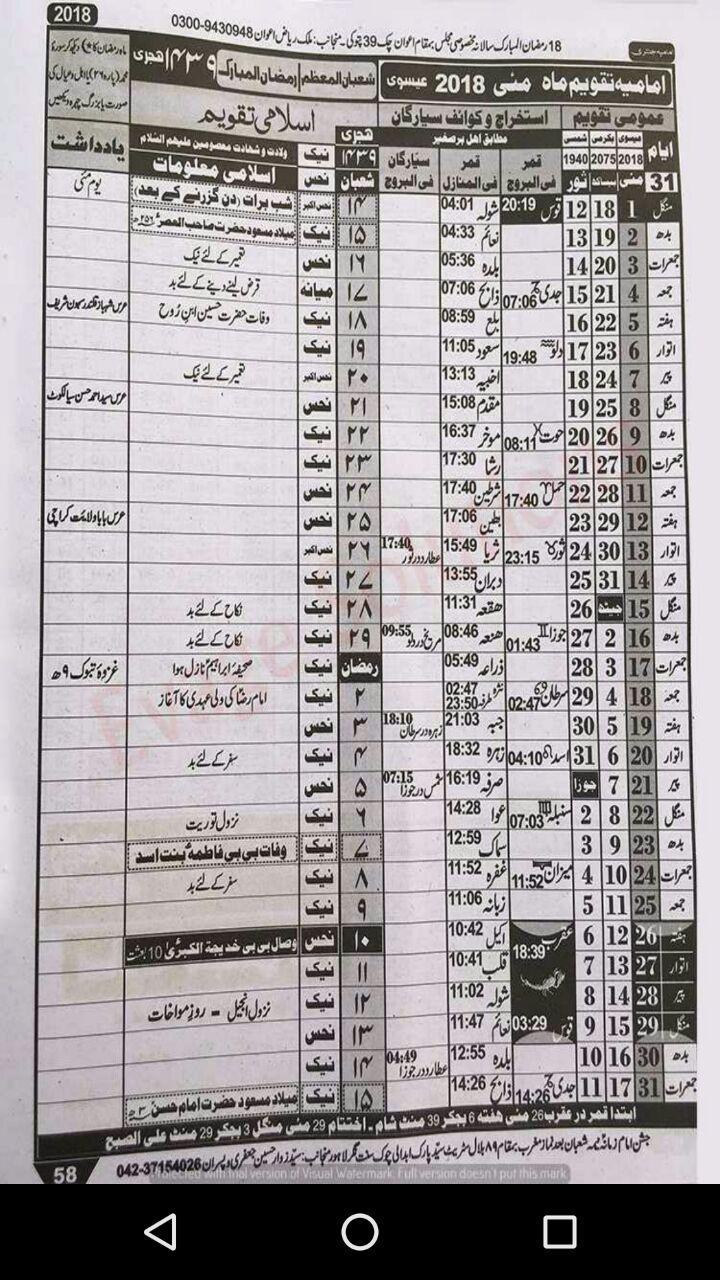 2018
18 رمضان المبارک سالانہ مخصوصی مجلس بمقام اعوان چک 39 چوکی۔ منجانب: ملک ریاض اعوان 9430948-0300
امامیہ تقویم ماہ مئی 2018 عیسوی شعبان المعظم / رمضان المبارک ۱۴۳۹ ہجری
عمومی تقویم استخراج و کوائف سیارگان اسلامی تقویم
مطابق اہل برصغیر
ایام عیسوی 2018 بکرمی 2075 شمسی 1940 قمر فی البروج قمر فی المنازل سیارگان فی البروج ہجری ۱۴۳۹ نیک نحس ولادت و شہادت معصومین علیہم السلام یادداشت
31 مئی بیساکھ ثور شعبان اسلامی معلومات
منگل 1 18 12 قوس 20:19 شولہ 04:01 ۱۴ نحس اکبر شب برات (دن گزرنے کے بعد) یوم مئی
بدھ 2 19 13 نعائم 04:33 ۱۵ نیک میلاد مسعود حضرت صاحب العصرؑ ۲۵۶ھ
جمعرات 3 20 14 بلدہ 05:36 ۱۶ نحس تعمیر کے لئے نیک
جمعہ 4 21 15 جدی 07:06 ذابح 07:06 ۱۷ میانہ قرض لینے دینے کے لئے بد
ہفتہ 5 22 16 بلع 08:59 ۱۸ نیک وفات حضرت حسین ابن روح عرس شہباز قلندر سہون شریف
اتوار 6 23 17 دلو 19:48 سعود 11:05 ۱۹ نیک
پیر 7 24 18 اخبیہ 13:13 ۲۰ نحس اکبر تعمیر کے لئے نیک
منگل 8 25 19 مقدم 15:08 ۲۱ نحس عرس سید احمد حسن سیالکوٹ
بدھ 9 26 20 حوت 08:11 موخر 16:37 ۲۲ نیک
جمعرات 10 27 21 رشا 17:30 ۲۳ نیک
جمعہ 11 28 22 حمل 17:40 شرطین 17:40 ۲۴ نحس
ہفتہ 12 29 23 بطین 17:06 ۲۵ نحس عرس بابا ولایت کراچی
اتوار 13 30 24 ثور 23:15 ثریا 15:49 عطارد در ثور 17:40 ۲۶ نحس اکبر
پیر 14 31 25 دبران 13:55 ۲۷ نیک
منگل 15 جیٹھ 26 ہقعہ 11:31 ۲۸ نیک نکاح کے لئے بد
بدھ 16 2 27 جوزا 01:43 ہنعہ 08:46 مریخ در دلو 09:55 ۲۹ نیک نکاح کے لئے بد
جمعرات 17 3 28 ذراعہ 05:49 رمضان نیک صحیفہ ابراہیم نازل ہوا غزوۂ تبوک ۹ھ
جمعہ 18 4 29 سرطان 02:47 نثرہ طرفہ 02:47 23:50 ۲ نیک امام رضاؑ کی ولی عہدی کا آغاز
ہفتہ 19 5 30 جبہ 21:03 زہرہ در سرطان 18:10 ۳ نحس
اتوار 20 6 31 اسد 04:10 زہرہ 18:32 ۴ نیک سفر کے لئے بد
پیر 21 7 جوزا صرفہ 16:19 شمس در جوزا 07:15 ۵ نحس
منگل 22 8 2 سنبلہ 07:03 عوا 14:28 ۶ نیک نزول توریت
بدھ 23 9 3 سماک 12:59 ۷ نیک وفات بی بی فاطمہؑ بنت اسد
جمعرات 24 10 4 میزان 11:52 غفرہ 11:52 ۸ نیک سفر کے لئے بد
جمعہ 25 11 5 زبانہ 11:06 ۹ نیک
ہفتہ 26 12 6 عقرب 18:39 اکیل 10:42 ۱۰ نحس وصال بی بی خدیجۃ الکبریٰؑ 10 بعثت
اتوار 27 13 7 قلب 10:41 ۱۱ نیک
پیر 28 14 8 شولہ 11:02 ۱۲ نیک نزول انجیل - روز مواخات
منگل 29 15 9 قوس 03:29 نعائم 11:47 ۱۳ نحس
بدھ 30 16 10 بلدہ 12:55 عطارد در جوزا 04:49 ۱۴ نیک
جمعرات 31 17 11 جدی 14:26 ذابح 14:26 ۱۵ نیک میلاد مسعود حضرت امام حسنؑ ۳ھ
ابتدا قمر در عقرب 26 مئی ہفتہ 6 بجکر 39 منٹ شام۔ اختتام 29 مئی منگل 3 بجکر 29 منٹ علی الصبح
جشن امام زمانہؑ نیمہ شعبان بعد نماز مغرب بمقام ۸۹ ہلال سٹریٹ سید پارک ابدالی چوک سنت نگر لاہور منجانب: سید زوار حسین جعفری و پسران 37154026-042
58
protected with trial version of Visual Watermark. Full version doesn't put this mark